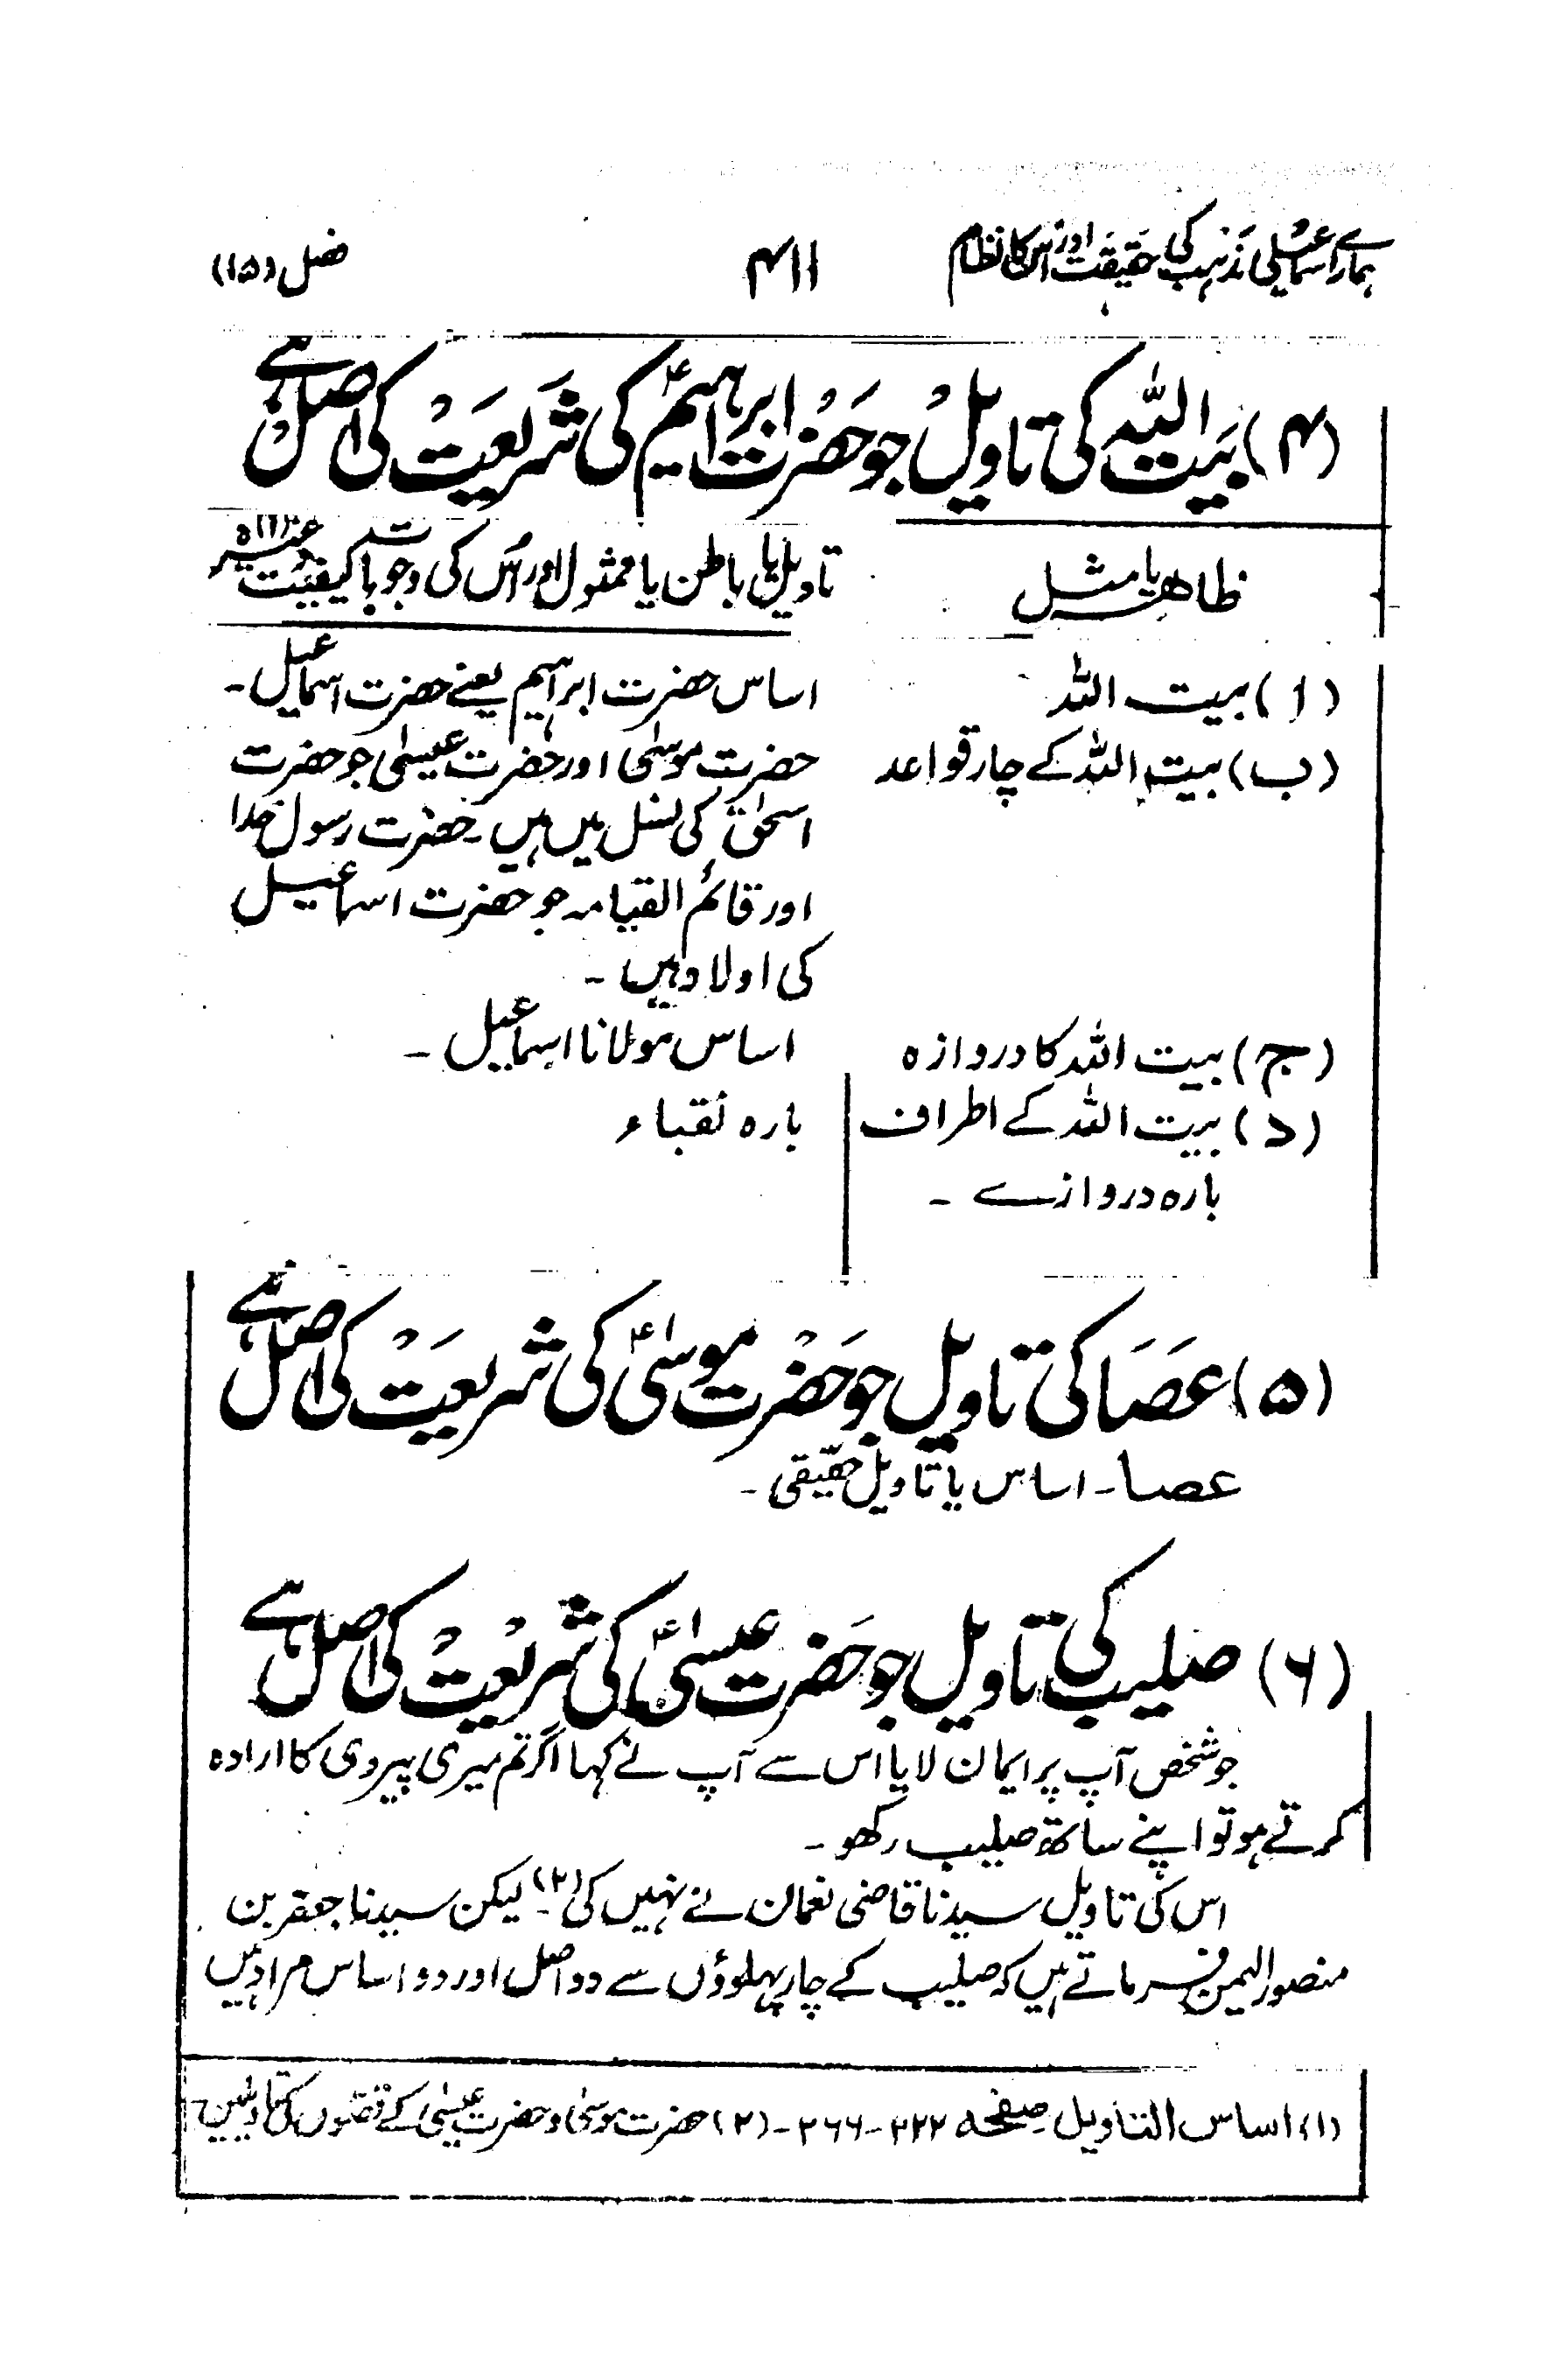 ہمارے اسماعیلی مذہب کی حقیقت اور اس کا نظام
۴۱۱
فصل (۱۵)
(۴) بیت اللہ کی تاویل جو حضرت ابراہیمؑ کی شریعت کی اصل ہے
ظاہر یا مثل
تاویل یا باطن یا ممثول اور اُس کی وجوہات کیفیت وغیرہ (۱)
(ا) بیت اللہ
اساس حضرت ابراہیم یعنے حضرت اسماعیل۔
(ب) بیت اللہ کے چار قواعد
حضرت موسیٰ اور حضرت عیسیٰ جو حضرت
اسحٰق کی نسل میں ہیں۔ حضرت رسول خدا
اور قائم القیامہ جو حضرت اسماعیل
کی اولاد ہیں۔
(ج) بیت اللہ کا دروازہ
اساس مولانا اسماعیل۔
(د) بیت اللہ کے اطراف
بارہ دروازے۔
بارہ نقباء
(۵) عصا کی تاویل جو حضرت موسیٰؑ کی شریعت کی اصل ہے
عصا۔ اساس یا تاویل حقیقی۔
(۶) صلیب کی تاویل جو حضرت عیسیٰؑ کی شریعت کی اصل ہے
جو شخص آپ پر ایمان لایا اس سے آپ نے کہا اگر تم میری پیروی کا ارادہ
کرتے ہو تو اپنے ساتھ صلیب رکھو۔
اس کی تاویل سیدنا قاضی نعمان نے نہیں کی (۲)۔ لیکن سیدنا جعفر بن
منصور الیمن فرماتے ہیں کہ صلیب کے چار پہلوؤں سے دو اصل اور دو اساس مراد ہیں
(۱) اساس التاویل صفحہ ۲۲۲-۲۶۶۔ (۲) حضرت موسیٰ و حضرت عیسیٰ کے قصوں کی تاویلیں